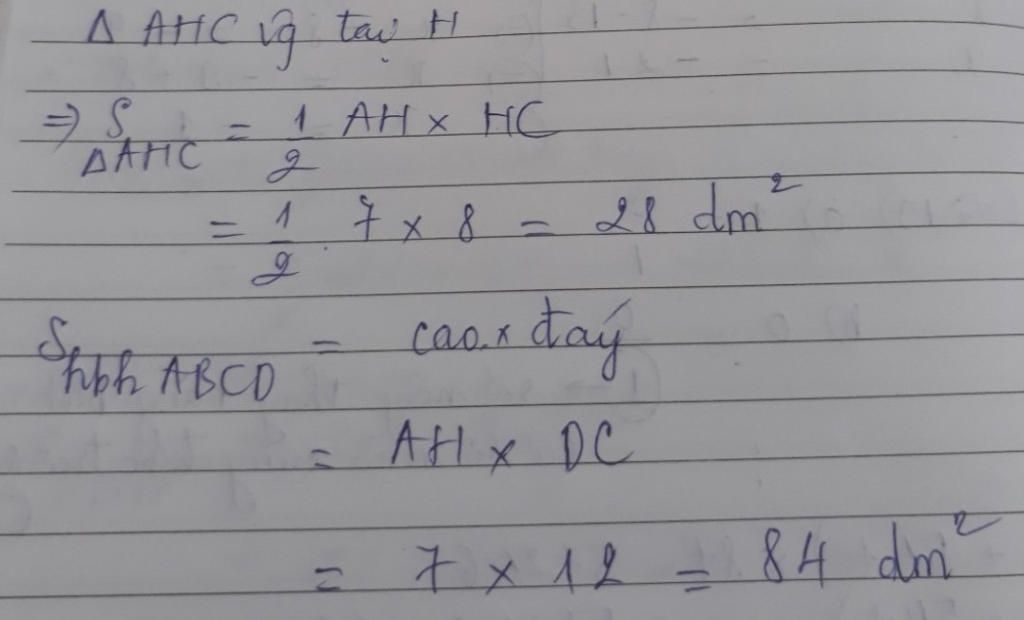 Δ AHC vg tại H
⇒ S ΔAHC = 1/2 AH × HC
= 1/2 . 7 × 8 = 28 dm²
S hbh ABCD = cao × đáy
= AH × DC
= 7 × 12 = 84 dm²